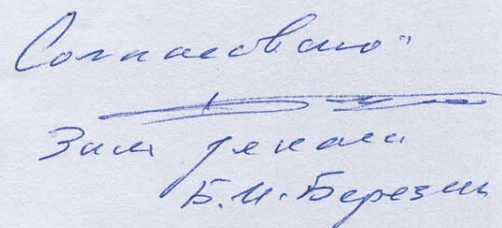 Согласовано"
Зам декана
Б.И.Березин